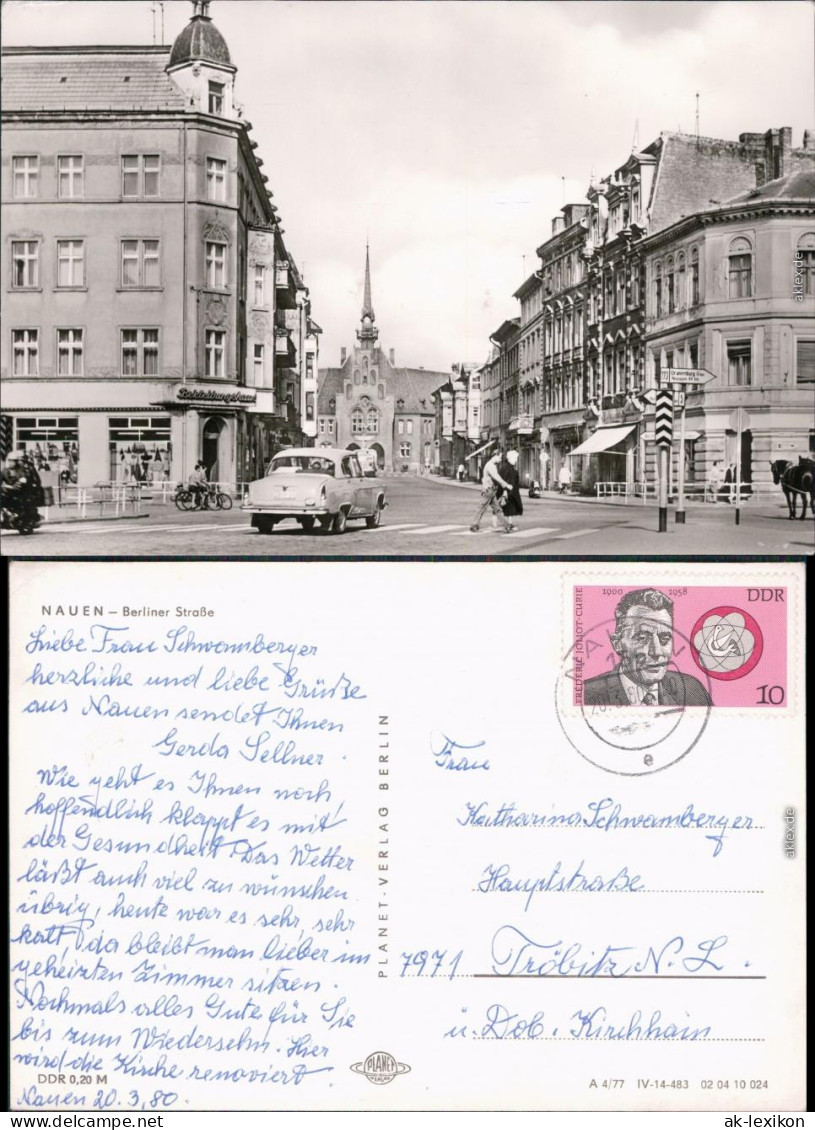 Bekleidungshaus
NAUEN – Berliner Straße
Liebe Frau Schwamberger
herzliche und liebe Grüße
aus Nauen sendet Ihnen
Gerda Sellner.
Wie geht es Ihnen noch
hoffendlich klappt es mit
der Gesundheit. Das Wetter
läßt auch viel zu wünschen
übrig, heute war es sehr, sehr
kalt, da bleibt man lieber im
geheizten Zimmer sitzen.
Nochmals alles Gute für Sie
bis zum Wiedersehn. Hier
wird die Kirche renoviert.
Nauen 20.3.80.
DDR 0,20 M
PLANET-VERLAG BERLIN
PLANET
VERLAG
FRÉDÉRIC JOLIOT-CURIE
1900 1958
DDR
10
e
Frau
Katharina Schwamberger
Hauptstraße
7971 Tröbitz N. L.
ü. Dob. Kirchhain
A 4/77 IV-14-483 02 04 10 024
aklex.de
aklex.de
www.ak-ansichtskarten.de
ak-lexikon